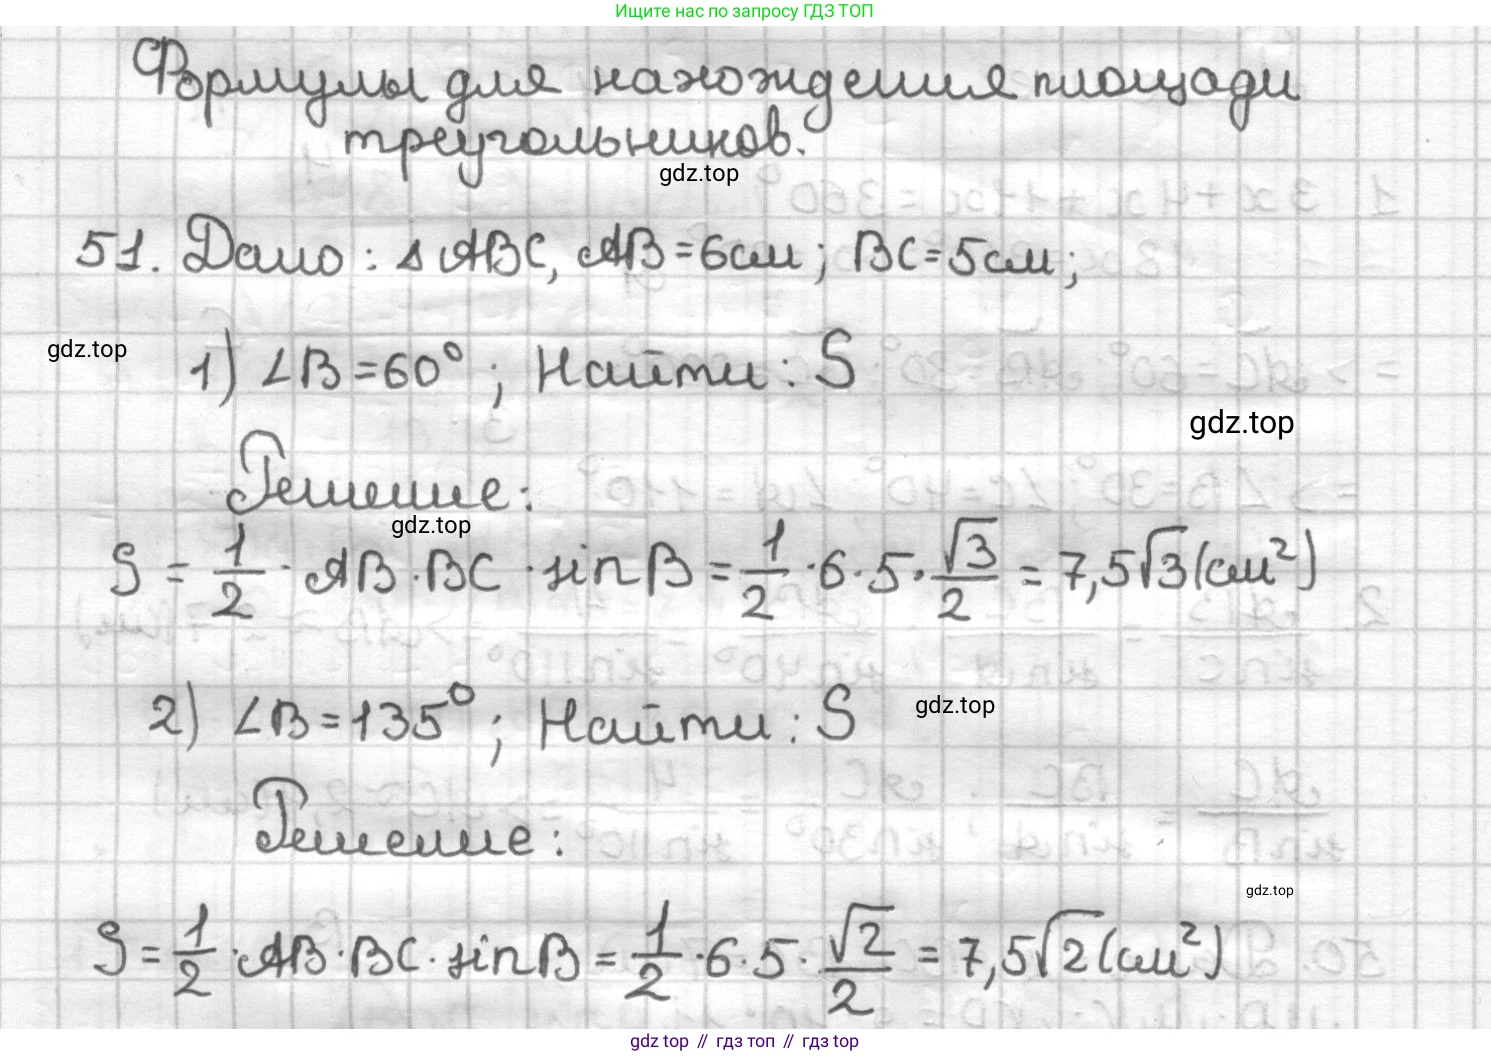 Ищите нас по запросу ГДЗ ТОП
Формулы для нахождения площади
треугольников.
gdz.top
51. Дано: Δ ABC, AB = 6см; BC = 5см;
gdz.top
1) ∠B = 60°; Найти: S
gdz.top
Решение:
gdz.top
S = 1/2 · AB · BC · sin B = 1/2 · 6 · 5 · √3/2 = 7,5√3 (см²)
2) ∠B = 135°; Найти: S
gdz.top
Решение:
gdz.top
S = 1/2 · AB · BC · sin B = 1/2 · 6 · 5 · √2/2 = 7,5√2 (см²)
gdz.top // гдз топ // гдз top